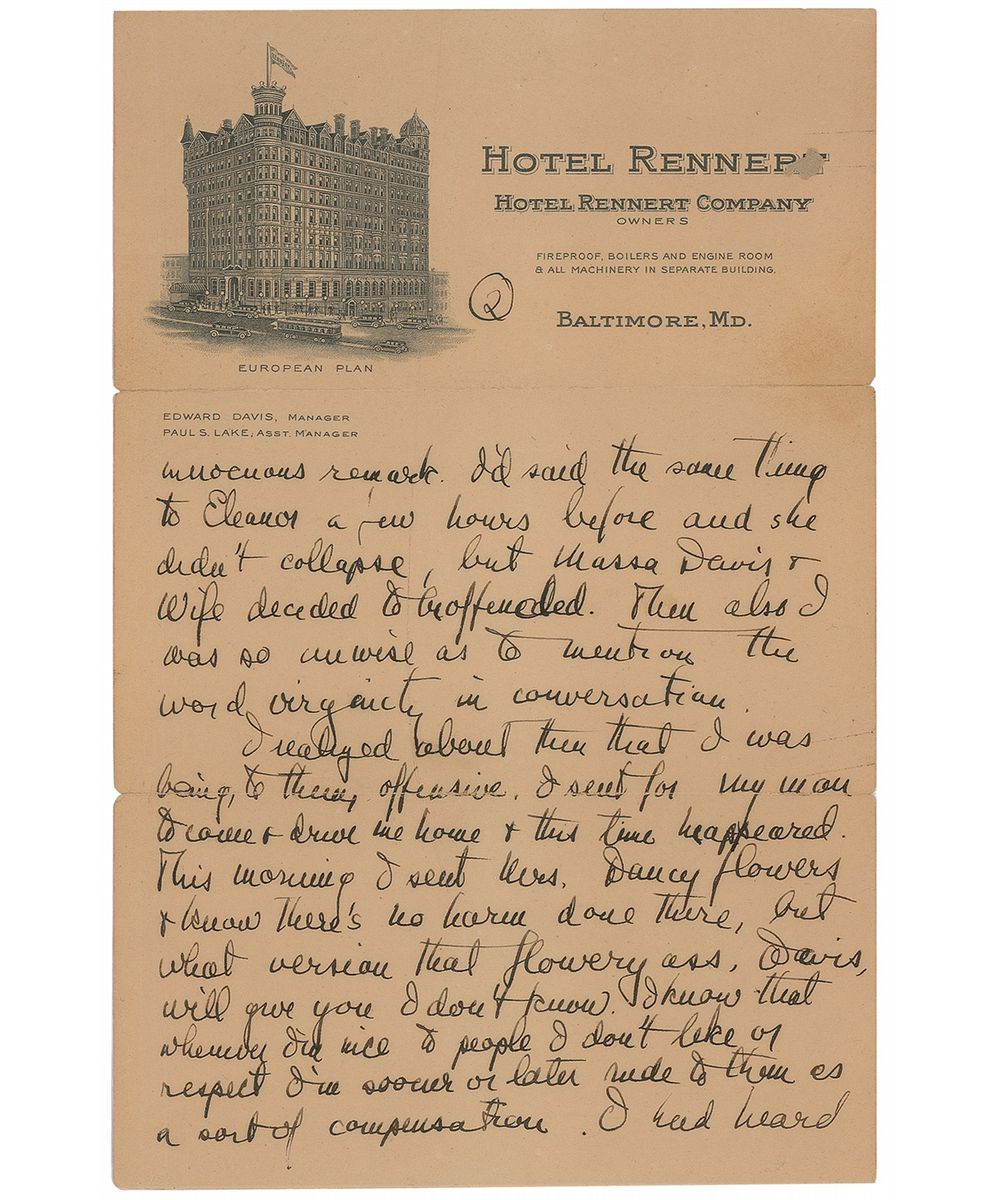 HOTEL RENNERT
HOTEL RENNERT COMPANY
OWNERS
FIREPROOF, BOILERS AND ENGINE ROOM
& ALL MACHINERY IN SEPARATE BUILDING.
②
BALTIMORE, MD.
EUROPEAN PLAN
EDWARD DAVIS, MANAGER
PAUL S. LAKE, ASST. MANAGER
innocuous remark. I'd said the same thing
to Eleanor a few hours before and she
didn't collapse, but Massa Davis +
Wife decided to be offended. Then also I
was so unwise as to mention the
word virginity in conversation.
I realized about then that I was
being, to them, offensive. I sent for my man
to come + drive me home + this time he appeared.
This morning I sent Mrs. Dancy flowers
+ know there's no harm done there, but
what version that flowery ass, Davis,
will give you I don't know. I know that
whenever I'm nice to people I don't like or
respect I'm sooner or later rude to them as
a sort of compensation. I had heard